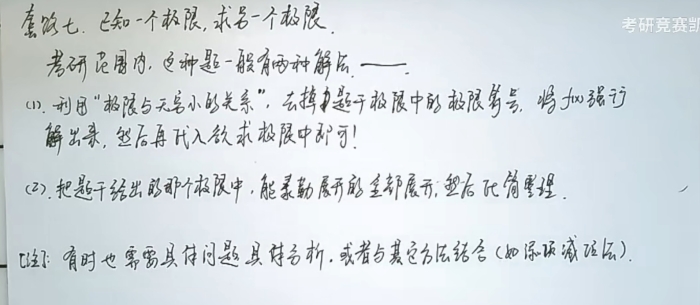 套路七. 已知一个极限,求另一个极限.
考研竞赛凯
考研范围内,这种题一般有两种解法——.
(1). 利用“极限与无穷小的关系”,去掉题干极限中的极限符号,将f(x)强行
解出来,然后再代入欲求极限中即可!
(2). 把题干给出的那个极限中,能泰勒展开的全部展开;然后化简整理.
[注]: 有时也需要具体问题具体分析,或者与其它方法结合(如添项减项法).